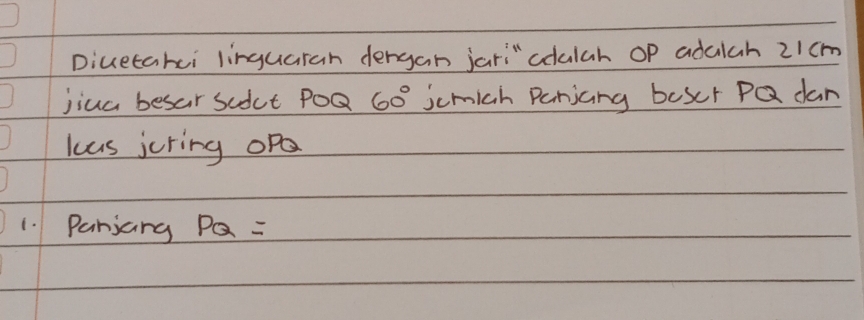 Diketahui lingkaran dengan jari" adalah OP adalah 21 cm
jika besar sudut POQ 60° jumlah Panjang busur PQ dan
luas juring OPQ
1. Panjang PQ =